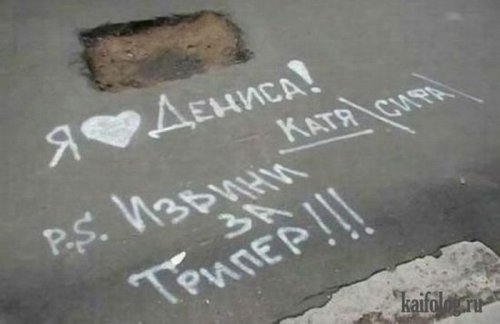 Я ♥ Дениса!
Катя\сифа\
P.S. Извини
за
Трипер!!!
kaifolog.ru